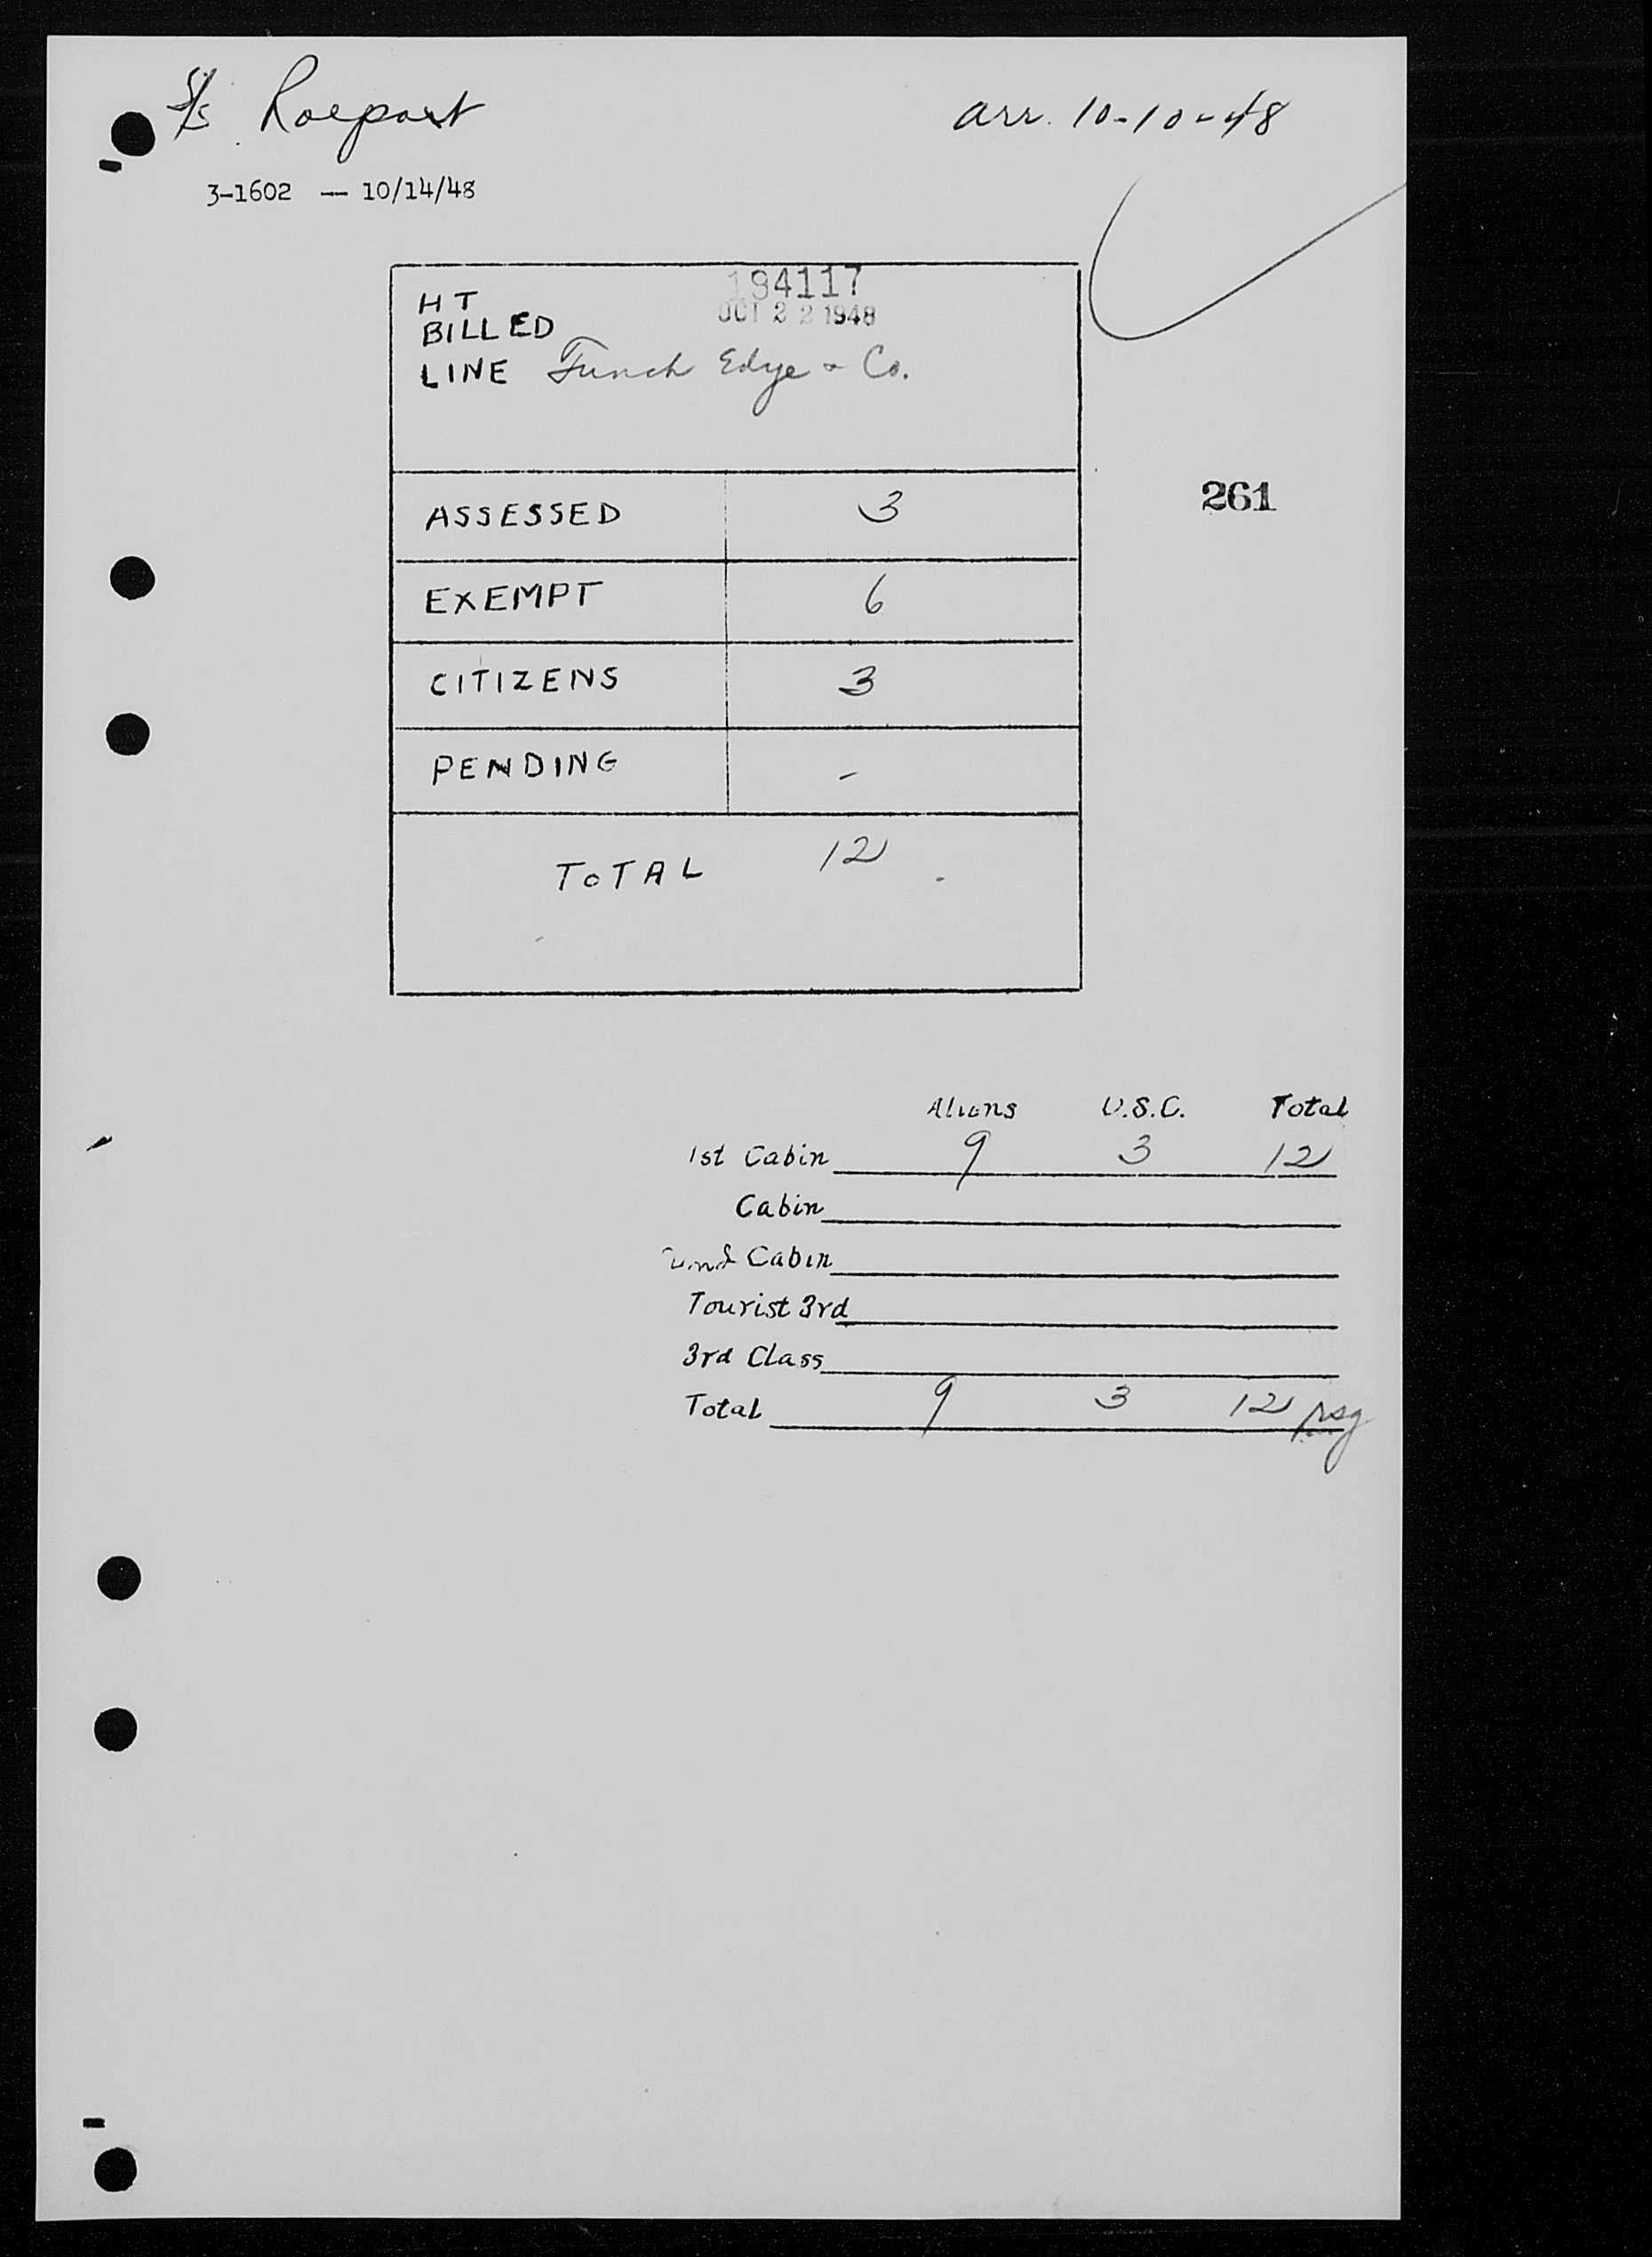 S/s Roepat arr. 10-10-48
3-1602 — 10/14/48
194117
HT OCT 22 1948
BILLED
LINE Funch Edye & Co.
261
ASSESSED 3
EXEMPT 6
CITIZENS 3
PENDING -
TOTAL 12
Aliens U.S.C. Total
1st Cabin 9 3 12
Cabin
Cabin
Tourist 3rd
3rd Class
Total 9 3 12 psg